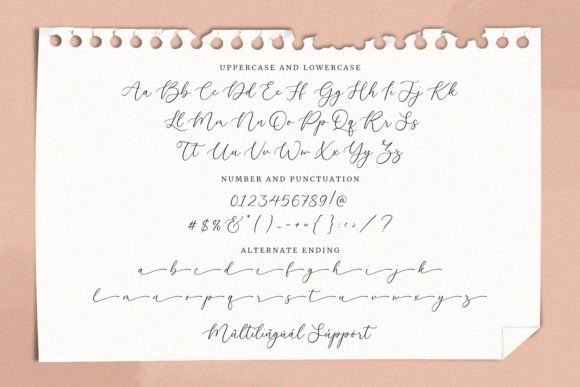 UPPERCASE AND LOWERCASE
Aa Bb Cc Dd Ee Ff Gg Hh Ii Jj Kk
Ll Mm Nn Oo Pp Qq Rr Ss
Tt Uu Vv Ww Xx Yy Zz
NUMBER AND PUNCTUATION
0123456789!@
#$%&*()_-+={}:;<>/?
ALTERNATE ENDING
a b c d e f g h i j k
l m n o p q r s t u v w x y z
Múltilíñgüál Súppört